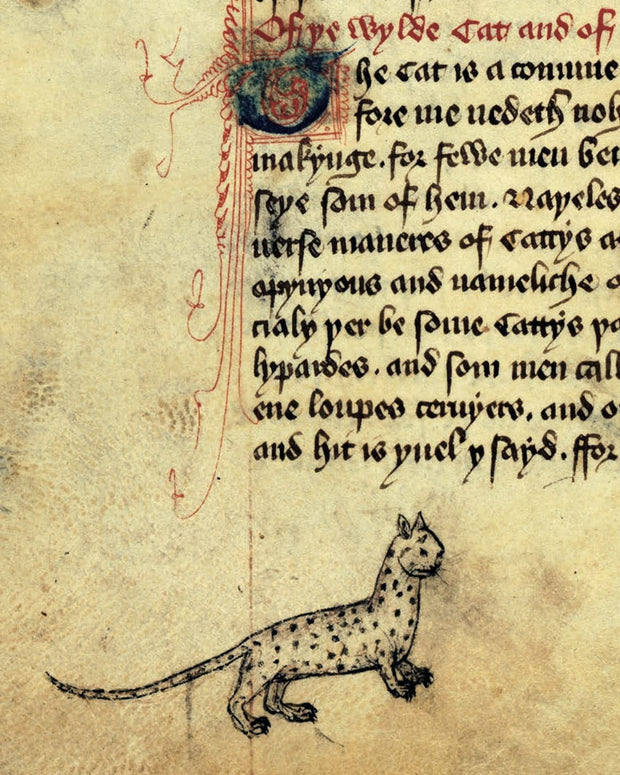 Of ye wylde Cat and of
The Cat is a comune
fore me nedeth noh
makynge. for fewe men bet
seye som of hem. Nayeles
uerse maneres of Cattys a
opynyons and nameliche o
cialy yer be some Cattys ya
lypardes. and som men call
ene loupes ceruyers. and o
and hit is yuel y sayd. ffor